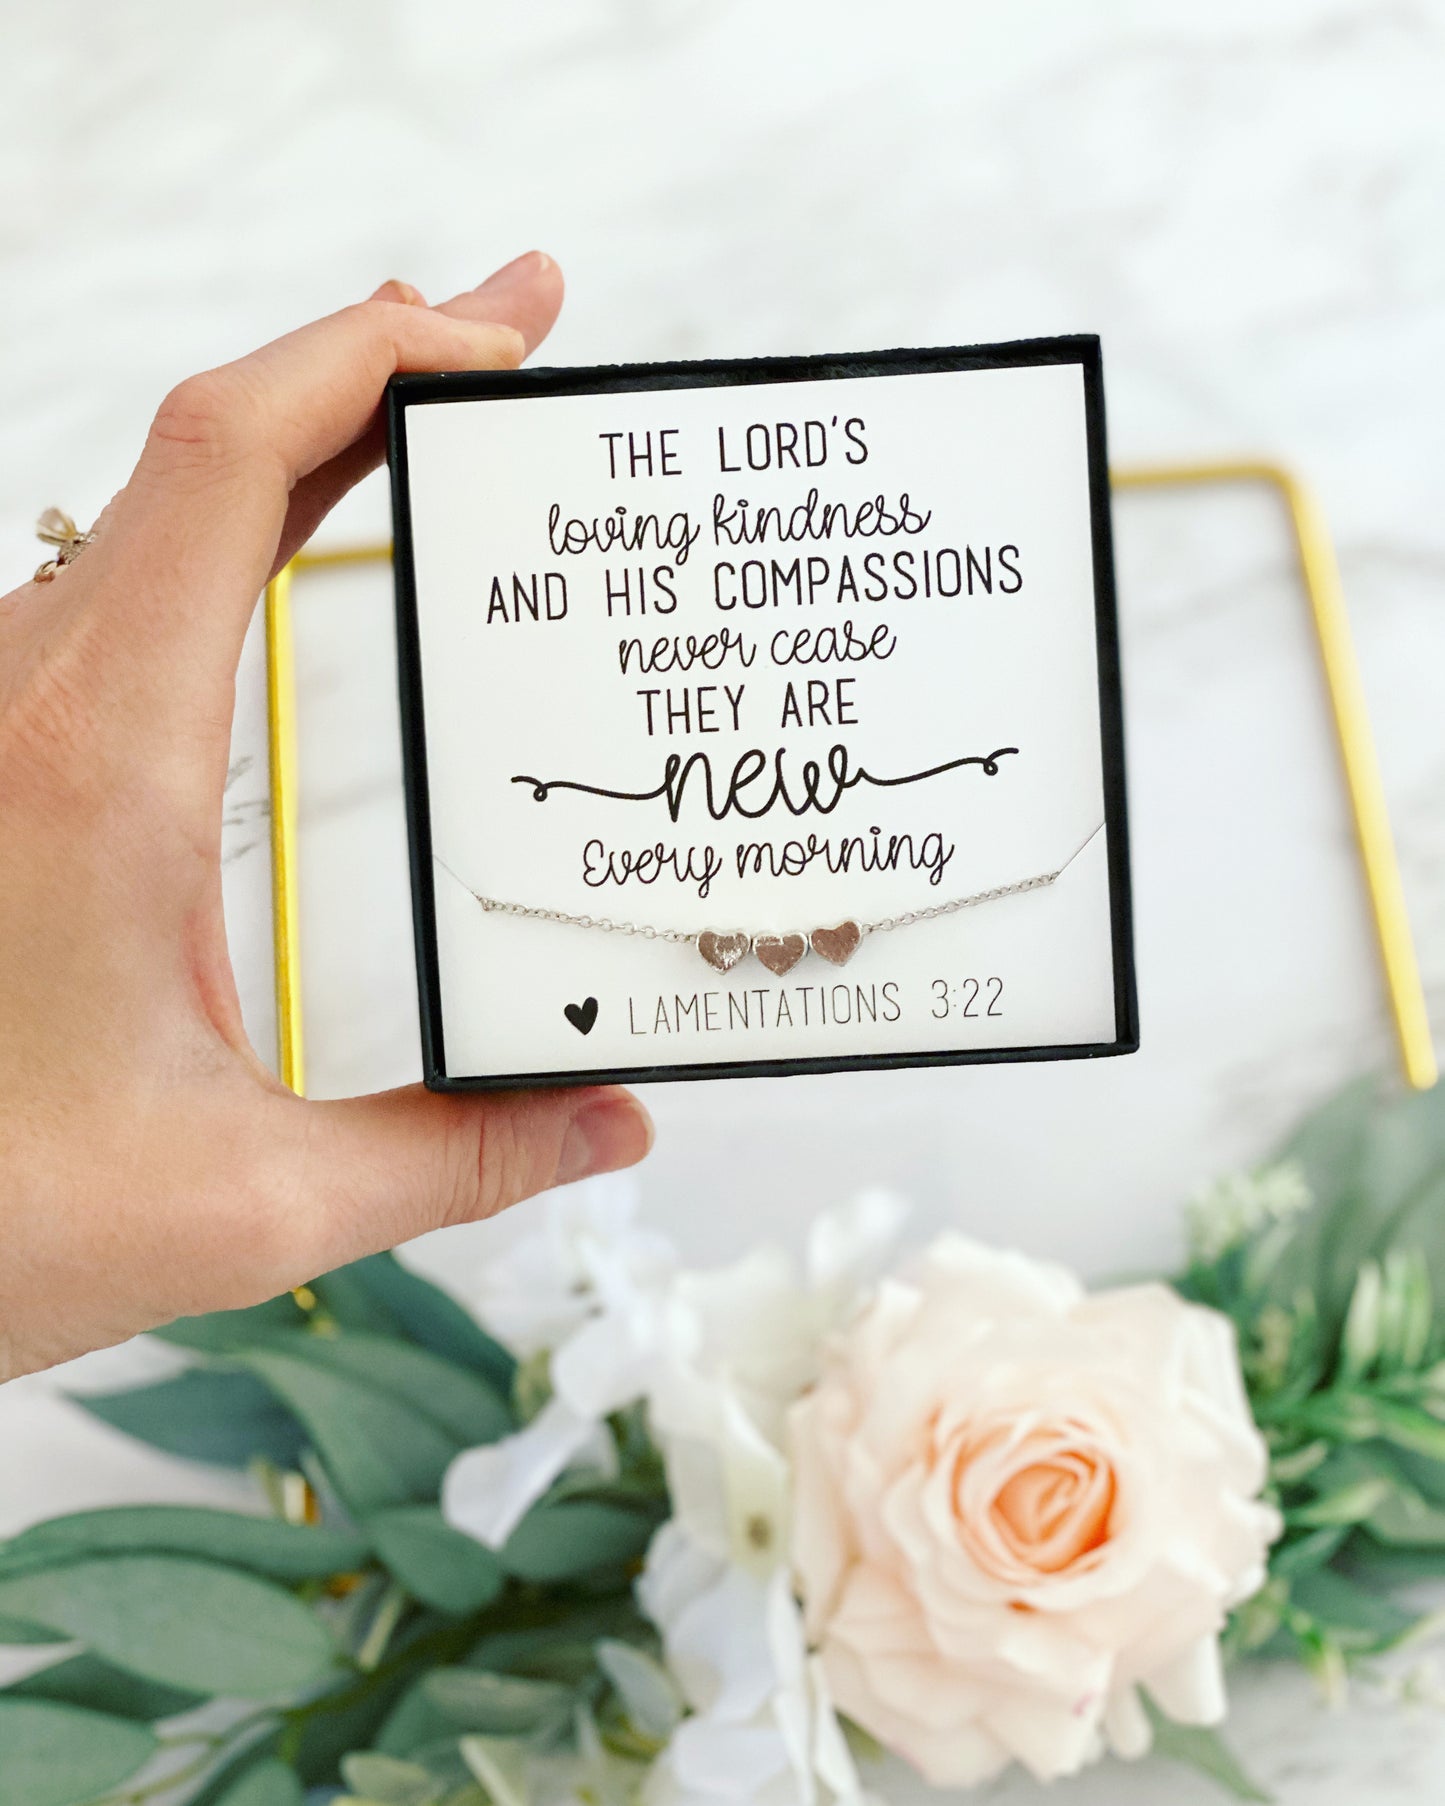 THE LORD'S
loving kindness
AND HIS COMPASSIONS
never cease
THEY ARE
new
Every morning
LAMENTATIONS 3:22